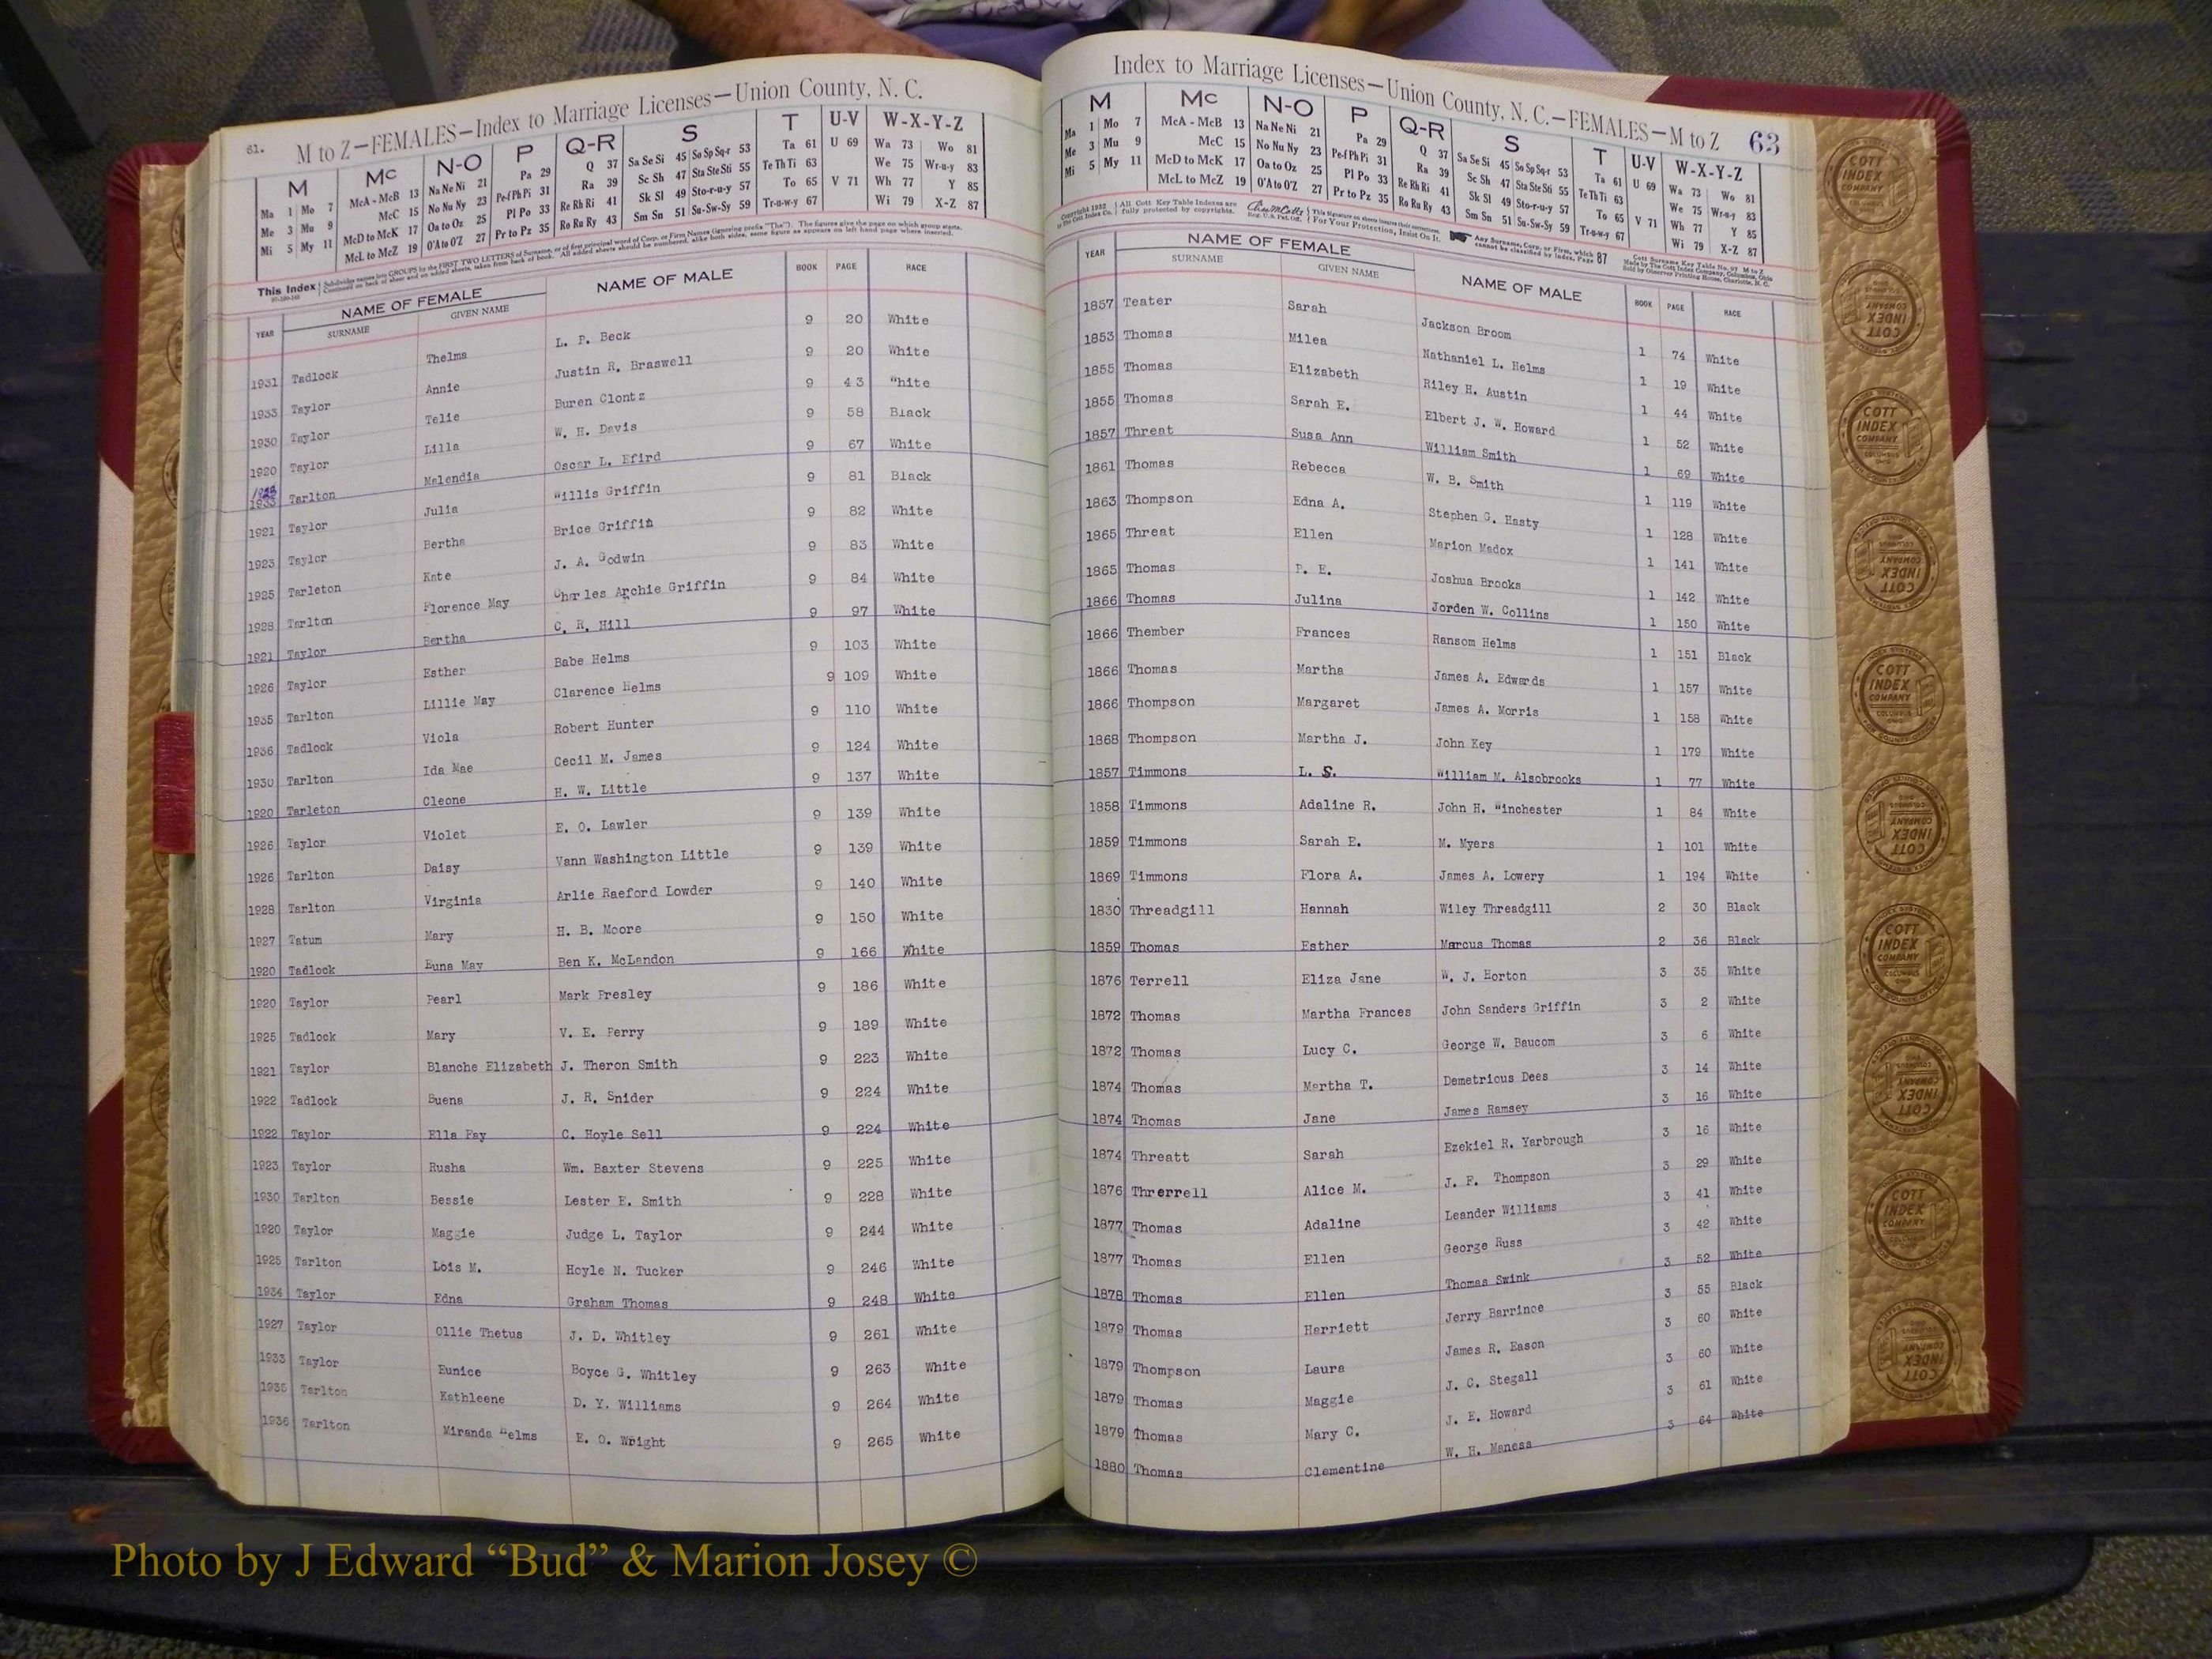 61.
M to Z—FEMALES—Index to Marriage Licenses—Union County, N. C.
M Mc N-O P Q-R S T U-V W-X-Y-Z
Ma 1 Mo 7 McA - McB 13 Na Ne Ni 21 Pa 29 Q 37 Sa Se Si 45 So Sp Sq-r 53 Ta 61 U 69 Wa 73 Wo 81
Me 3 Mu 9 McC 15 No Nu Ny 23 Pe-f Ph Pi 31 Ra 39 Sc Sh 47 Sta Ste Sti 55 Te Th Ti 63 We 75 Wr-u-y 83
Mi 5 My 11 McD to McK 17 Oa to Oz 25 Pl Po 33 Re Rh Ri 41 Sk Sl 49 Sto-r-u-y 57 To 65 V 71 Wh 77 Y 85
McL to McZ 19 O'A to O'Z 27 Pr to Pz 35 Ro Ru Ry 43 Sm Sn 51 Su-Sw-Sy 59 Tr-u-w-y 67 Wi 79 X-Z 87
This Index
YEAR NAME OF FEMALE SURNAME GIVEN NAME NAME OF MALE BOOK PAGE RACE
1931 Tadlock Thelma L. P. Beck 9 20 White
1933 Taylor Annie Justin R. Braswell 9 20 White
1930 Taylor Telie Buren Clontz 9 43 "hite
1920 Taylor Lilla W. H. Davis 9 58 Black
1933 Tarlton Melendia Oscar L. Efird 9 67 White
1921 Taylor Julia Willis Griffin 9 81 Black
1923 Taylor Bertha Brice Griffin 9 82 White
1925 Tarleton Kate J. A. Godwin 9 83 White
1928 Tarlton Florence May Charles Archie Griffin 9 84 White
1921 Taylor Bertha C. R. Hill 9 97 White
1926 Taylor Esther Babe Helms 9 103 White
1935 Tarlton Lillie May Clarence Helms 9 109 White
1936 Tadlock Viola Robert Hunter 9 110 White
1930 Tarlton Ida Mae Cecil M. James 9 124 White
1920 Tarleton Cleone H. W. Little 9 137 White
1926 Taylor Violet E. O. Lawler 9 139 White
1926 Tarlton Daisy Vann Washington Little 9 139 White
1928 Tarlton Virginia Arlie Raeford Lowder 9 140 White
1927 Tatum Mary H. B. Moore 9 150 White
1920 Tadlock Euna May Ben K. McLendon 9 166 White
1920 Taylor Pearl Mark Presley 9 186 White
1925 Tadlock Mary V. E. Perry 9 189 White
1921 Taylor Blanche Elizabeth J. Theron Smith 9 223 White
1922 Tadlock Buena J. R. Snider 9 224 White
1922 Taylor Ella Fay C. Hoyle Sell 9 224 White
1923 Taylor Rusha Wm. Baxter Stevens 9 225 White
1930 Tarlton Bessie Lester E. Smith 9 228 White
1920 Taylor Maggie Judge L. Taylor 9 244 White
1925 Tarlton Lois M. Hoyle N. Tucker 9 246 White
1934 Taylor Edna Graham Thomas 9 248 White
1927 Taylor Ollie Thetus J. D. Whitley 9 261 White
1933 Taylor Eunice Boyce G. Whitley 9 263 White
1935 Tarlton Kathleene D. Y. Williams 9 264 White
1936 Tarlton Miranda Helms E. O. Wright 9 265 White
Index to Marriage Licenses—Union County, N. C.—FEMALES—M to Z 63
M Mc N-O P Q-R S T U-V W-X-Y-Z
Ma 1 Mo 7 McA - McB 13 Na Ne Ni 21 Pa 29 Q 37 Sa Se Si 45 So Sp Sq-r 53 Ta 61 U 69 Wa 73 Wo 81
Me 3 Mu 9 McC 15 No Nu Ny 23 Pe-f Ph Pi 31 Ra 39 Sc Sh 47 Sta Ste Sti 55 Te Th Ti 63 We 75 Wr-u-y 83
Mi 5 My 11 McD to McK 17 Oa to Oz 25 Pl Po 33 Re Rh Ri 41 Sk Sl 49 Sto-r-u-y 57 To 65 V 71 Wh 77 Y 85
McL to McZ 19 O'A to O'Z 27 Pr to Pz 35 Ro Ru Ry 43 Sm Sn 51 Su-Sw-Sy 59 Tr-u-w-y 67 Wi 79 X-Z 87
YEAR NAME OF FEMALE SURNAME GIVEN NAME NAME OF MALE BOOK PAGE RACE
1857 Teater Sarah Jackson Broom 1 74 White
1853 Thomas Milea Nathaniel L. Helms 1 19 White
1855 Thomas Elizabeth Riley H. Austin 1 44 White
1855 Thomas Sarah E. Elbert J. W. Howard 1 52 White
1857 Threat Susa Ann William Smith 1 69 White
1861 Thomas Rebecca W. B. Smith 1 119 White
1863 Thompson Edna A. Stephen G. Hasty 1 128 White
1865 Threat Ellen Marion Madox 1 141 White
1865 Thomas P. E. Joshua Brooks 1 142 White
1866 Thomas Julina Jorden W. Collins 1 150 White
1866 Thember Frances Ransom Helms 1 151 Black
1866 Thomas Martha James A. Edwards 1 157 White
1866 Thompson Margaret James A. Morris 1 158 White
1868 Thompson Martha J. John Key 1 179 White
1857 Timmons L. S. William M. Alsobrooks 1 77 White
1858 Timmons Adaline R. John H. "inchester 1 84 White
1859 Timmons Sarah E. M. Myers 1 101 White
1869 Timmons Flora A. James A. Lowery 1 194 White
1830 Threadgill Hannah Wiley Threadgill 2 30 Black
1859 Thomas Esther Marcus Thomas 2 36 Black
1876 Terrell Eliza Jane W. J. Horton 3 35 White
1872 Thomas Martha Frances John Sanders Griffin 3 2 White
1872 Thomas Lucy C. George W. Baucom 3 6 White
1874 Thomas Martha T. Demetrious Dees 3 14 White
1874 Thomas Jane James Ramsey 3 16 White
1874 Threatt Sarah Ezekiel R. Yarbrough 3 16 White
1876 Threrrell Alice M. J. F. Thompson 3 29 White
1877 Thomas Adaline Leander Williams 3 41 White
1877 Thomas Ellen George Russ 3 42 White
1878 Thomas Ellen Thomas Swink 3 52 White
1879 Thomas Harriett Jerry Barrince 3 55 Black
1879 Thompson Laura James R. Eason 3 60 White
1879 Thomas Maggie J. C. Stegall 3 60 White
1879 Thomas Mary C. J. E. Howard 3 61 White
1880 Thomas Clementine W. H. Maness 3 64 White
COTT INDEX COMPANY
Photo by J Edward “Bud” & Marion Josey ©